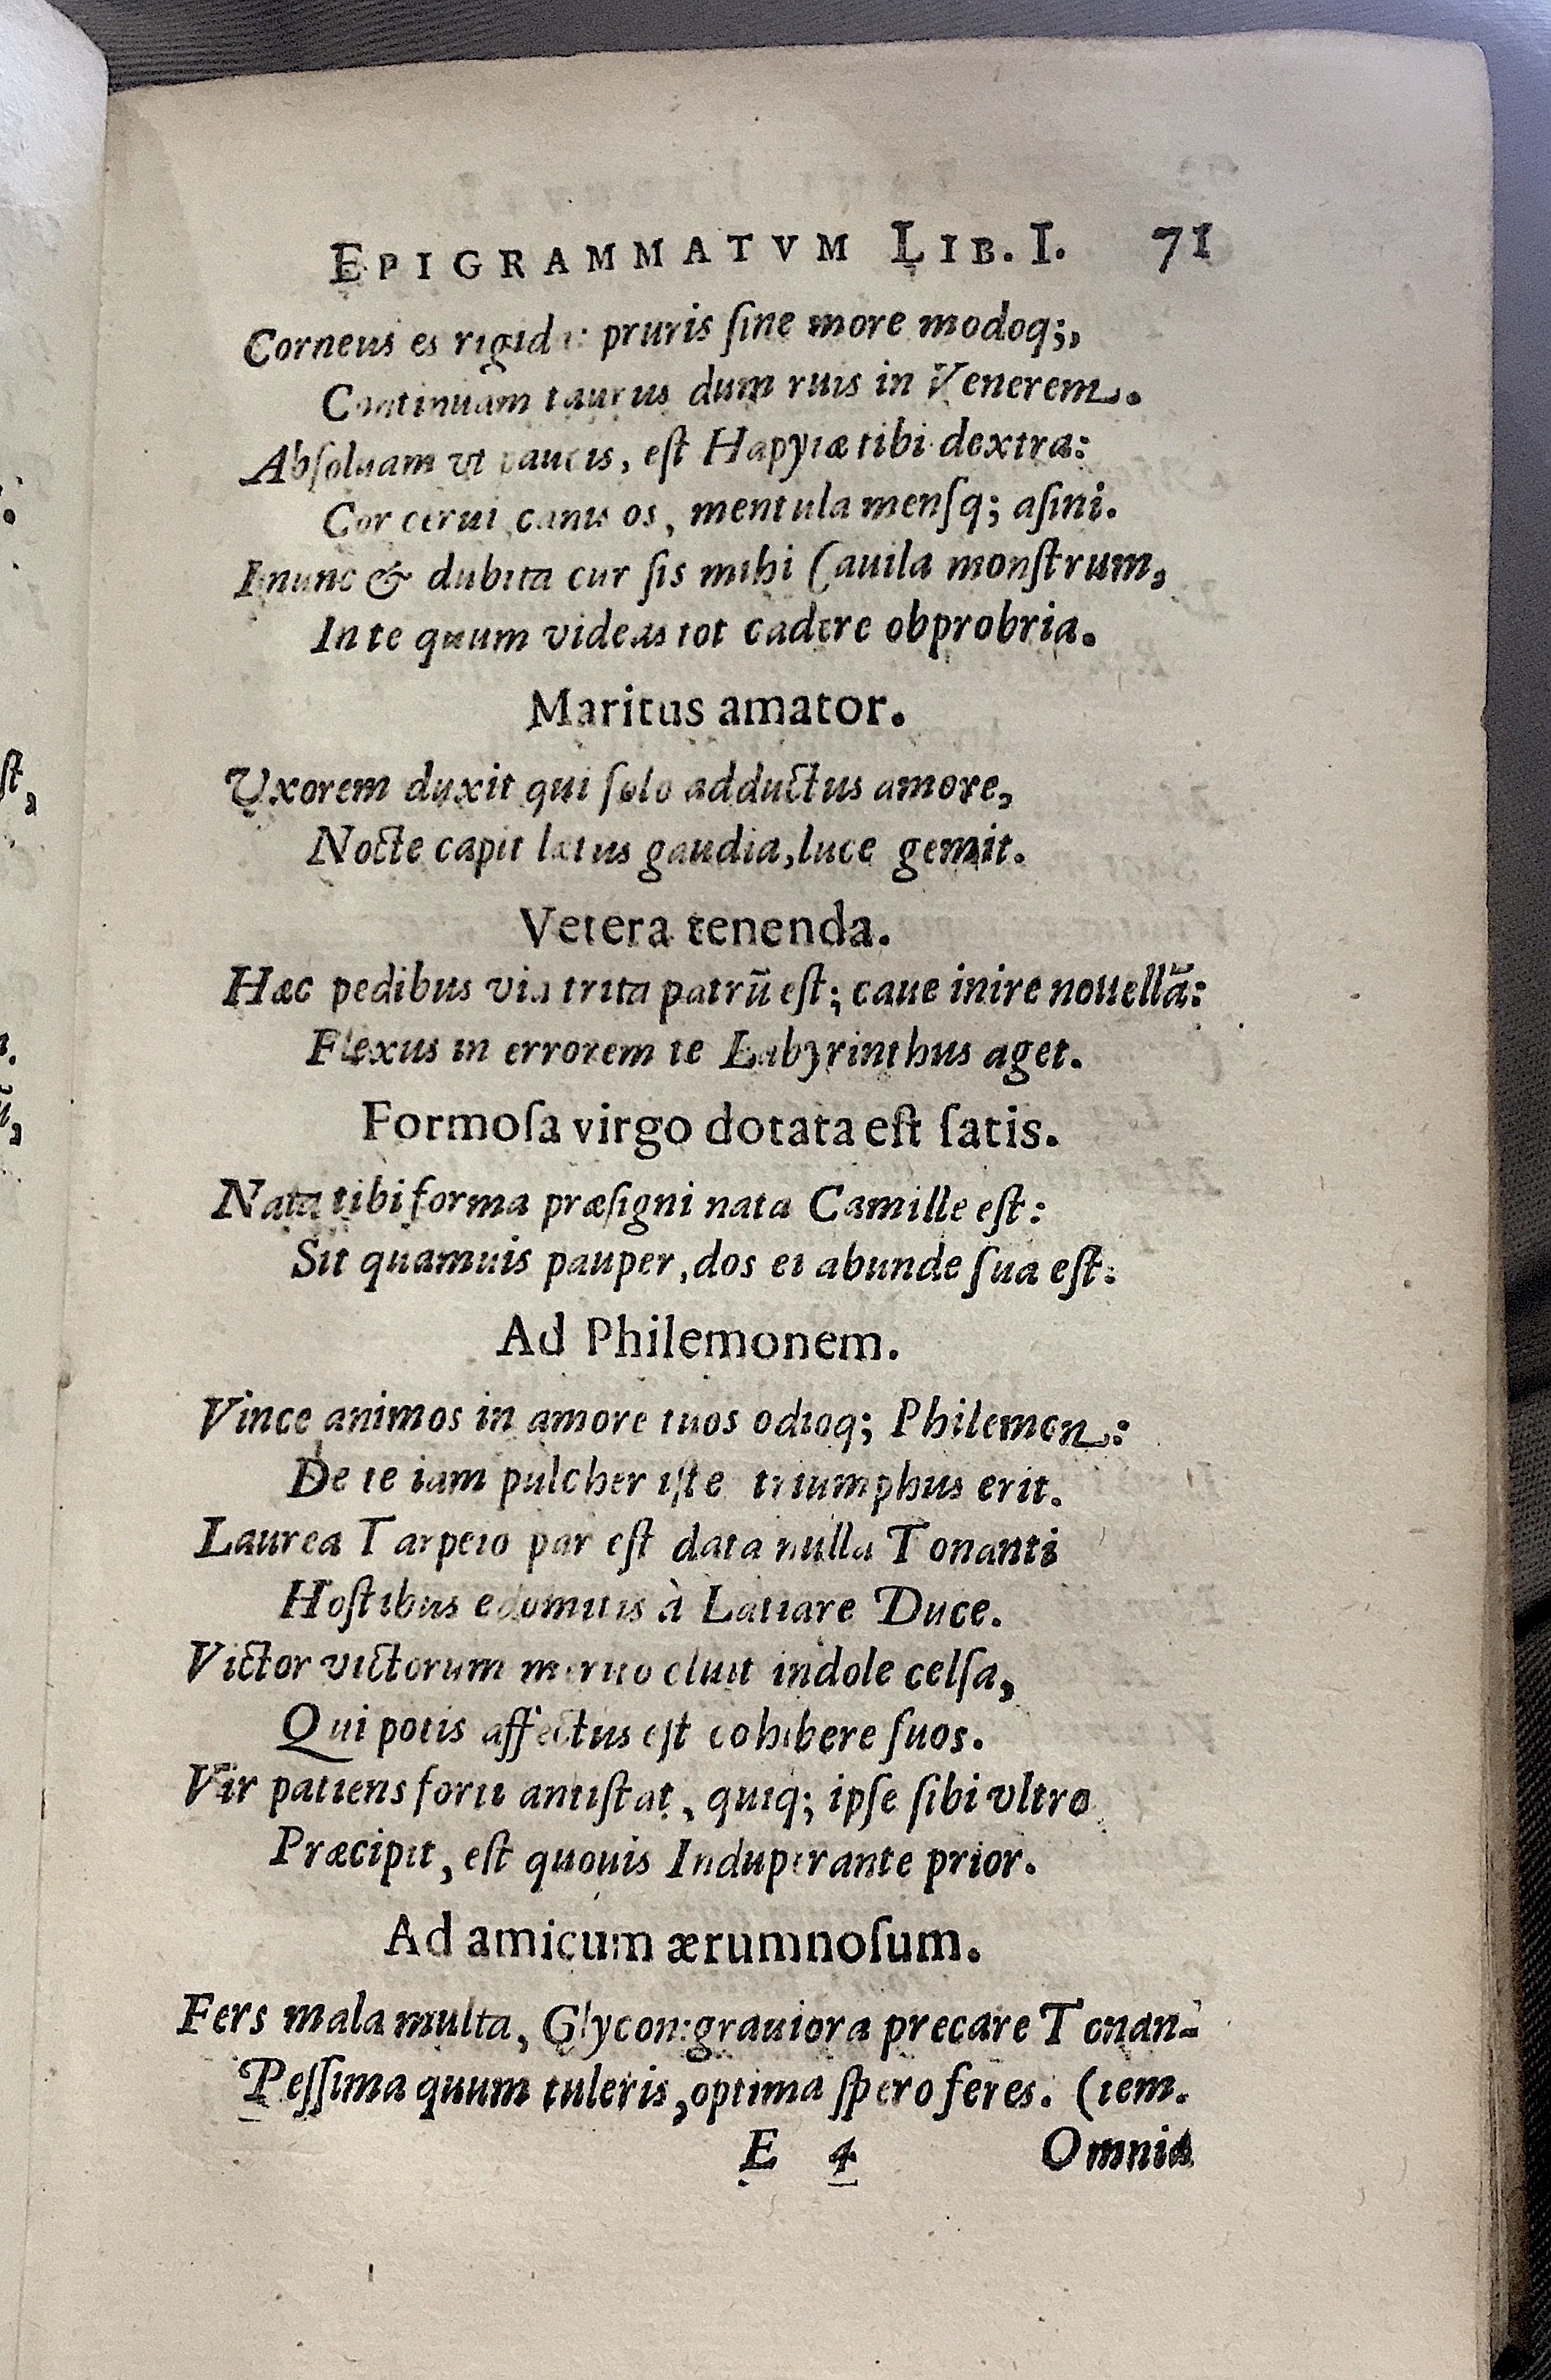 EPIGRAMMATVM LIB. I. 71
Corneus es rigidã: pruris ſine more modoq;,
Continuam taurus dum ruis in Venerem.
Abſoluam vt paucis, eſt Hapyiæ tibi dextra:
Cor cerui, canis os, mentula menſq; aſini.
I nunc & dubita cur ſis mihi Cauila monſtrum,
In te quum videas tot cadere obprobria.
Maritus amator.
Vxorem duxit qui ſolo adductus amore,
Nocte capit lætus gaudia, luce gemit.
Vetera tenenda.
Hæc pedibus via trita patrũ eſt; caue inire nouellã:
Flexus in errorem te Labyrinthus aget.
Formoſa virgo dotata eſt ſatis.
Nata tibi forma præſigni nata Camille eſt:
Sit quamuis pauper, dos ei abunde ſua eſt.
Ad Philemonem.
Vince animos in amore tuos odioq; Philemon:
De te iam pulcher iſte triumphus erit.
Laurea Tarpeio par eſt data nulla Tonanti
Hoſtibus edomitis à Latiare Duce.
Victor victorum merito cluit indole celſa,
Qui potis affectus eſt cohibere ſuos.
Vir patiens forti antiſtat, quiq; ipſe ſibi vltro
Præcipit, eſt quouis Induperante prior.
Ad amicum ærumnoſum.
Fers mala multa, Glycon: grauiora precare Tonan-
Peſſima quum tuleris, optima ſpero feres. (tem.
E 4 Omnia